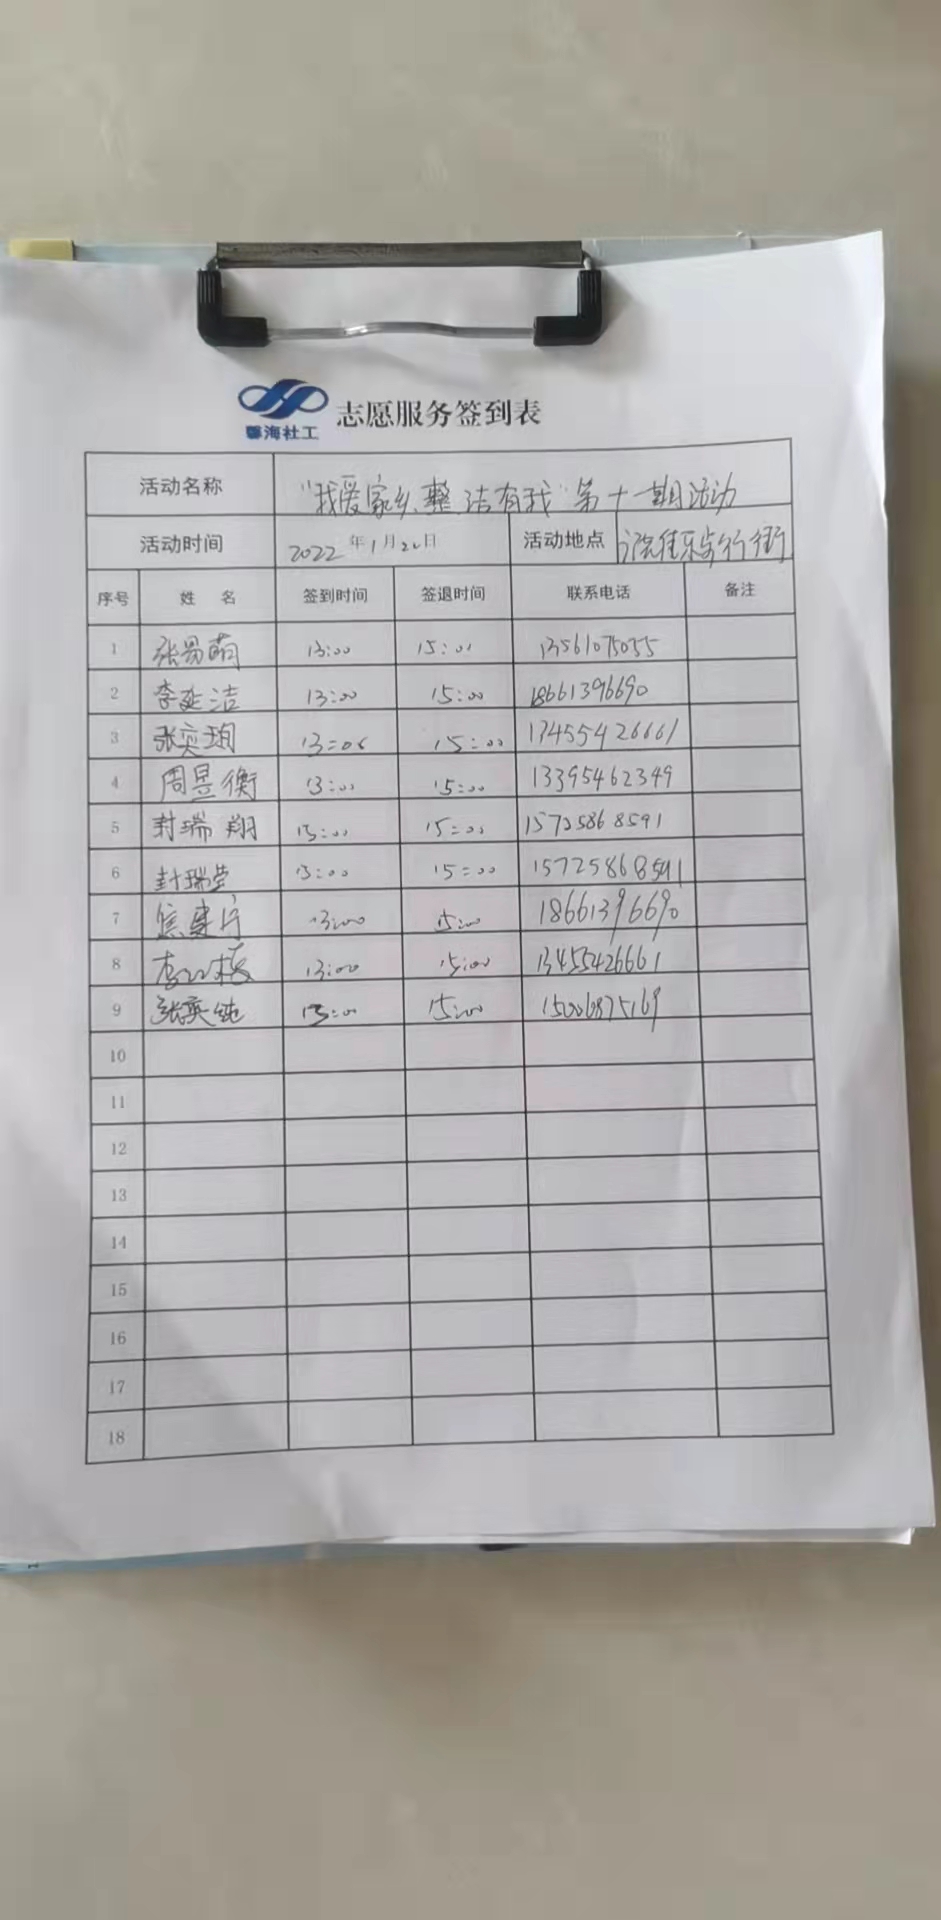 馨海社工 志愿服务签到表
活动名称 "我爱家乡,整洁有我"第十一期活动
活动时间 2022年1月2日 活动地点 步行街
序号 姓名 签到时间 签退时间 联系电话 备注
1 张易萌 13:00 15:00 13561075055
2 李延洁 13:00 15:00 18661396690
3 张奕珣 13:00 15:00 13455426661
4 周昱衡 13:00 15:00 13395462349
5 封瑞翔 13:00 15:00 15725868591
6 封瑞莹 13:00 15:00 15725868591
7 焦建 13:00 15:00 18661396690
8 李 13:00 15:00 13455426661
9 张英纯 13:00 15:00 15006875169
10
11
12
13
14
15
16
17
18